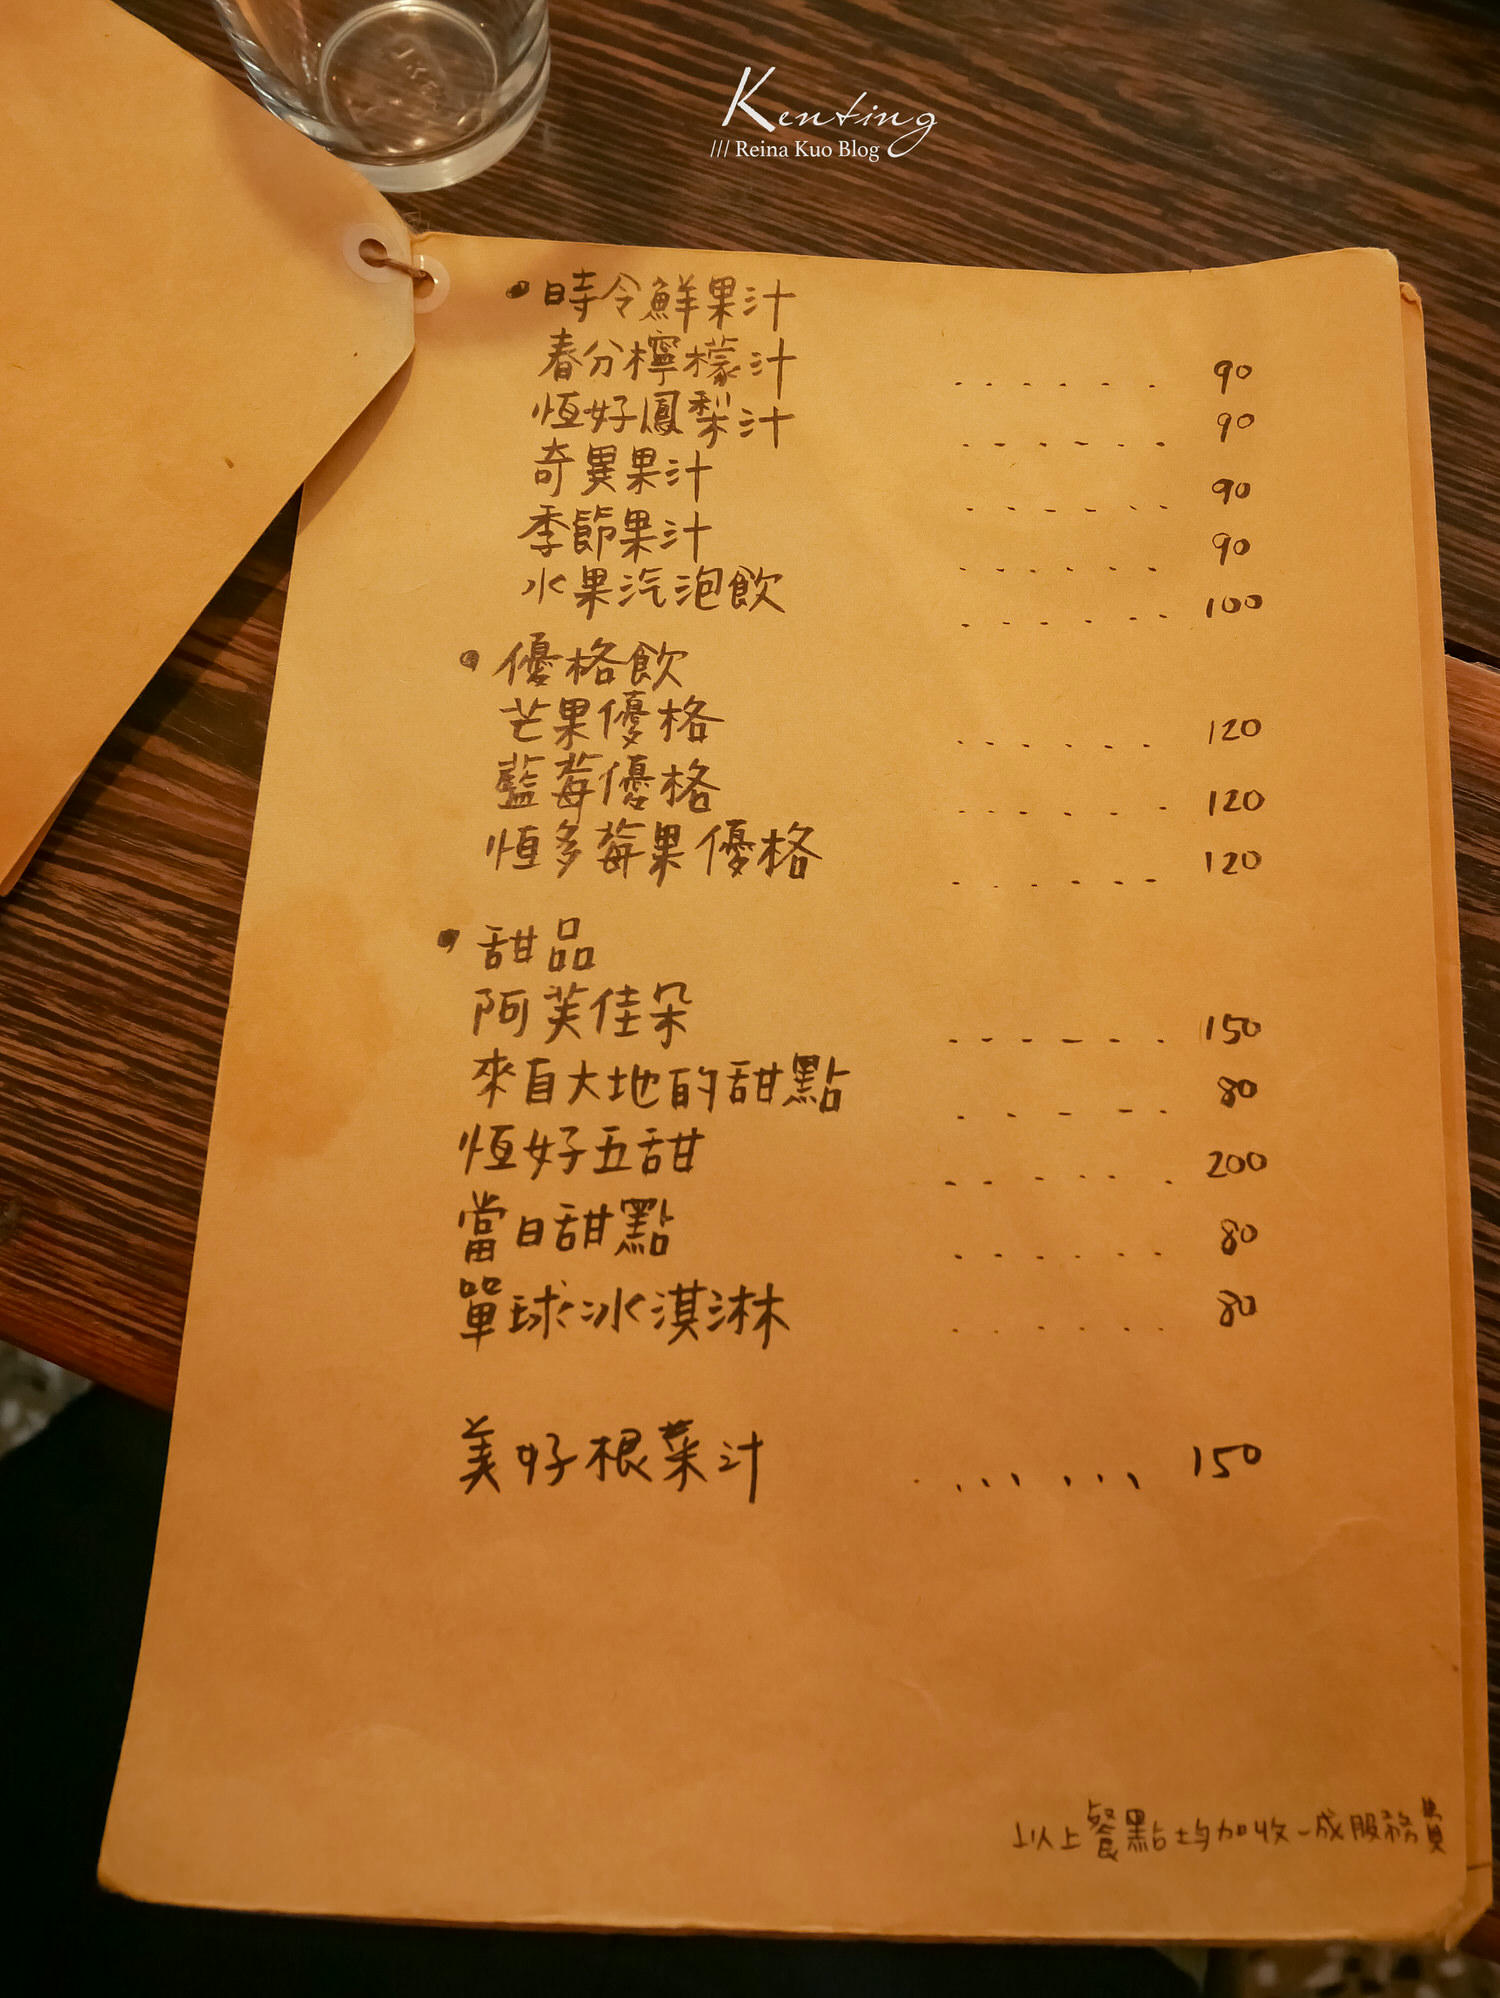 Kenting
/// Reina Kuo Blog
• 時令鮮果汁
春分檸檬汁 ...... 90
恆好鳳梨汁 ...... 90
奇異果汁 ...... 90
季節果汁 ...... 90
水果汽泡飲 ...... 100
• 優格飲
芒果優格 ...... 120
藍莓優格 ...... 120
恆多莓果優格 ...... 120
• 甜品
阿芙佳朵 ...... 150
來自大地的甜點 ...... 80
恆好五甜 ...... 200
當日甜點 ...... 80
單球冰淇淋 ...... 80
美好根菜汁 ...... 150
以上餐點均加收一成服務費